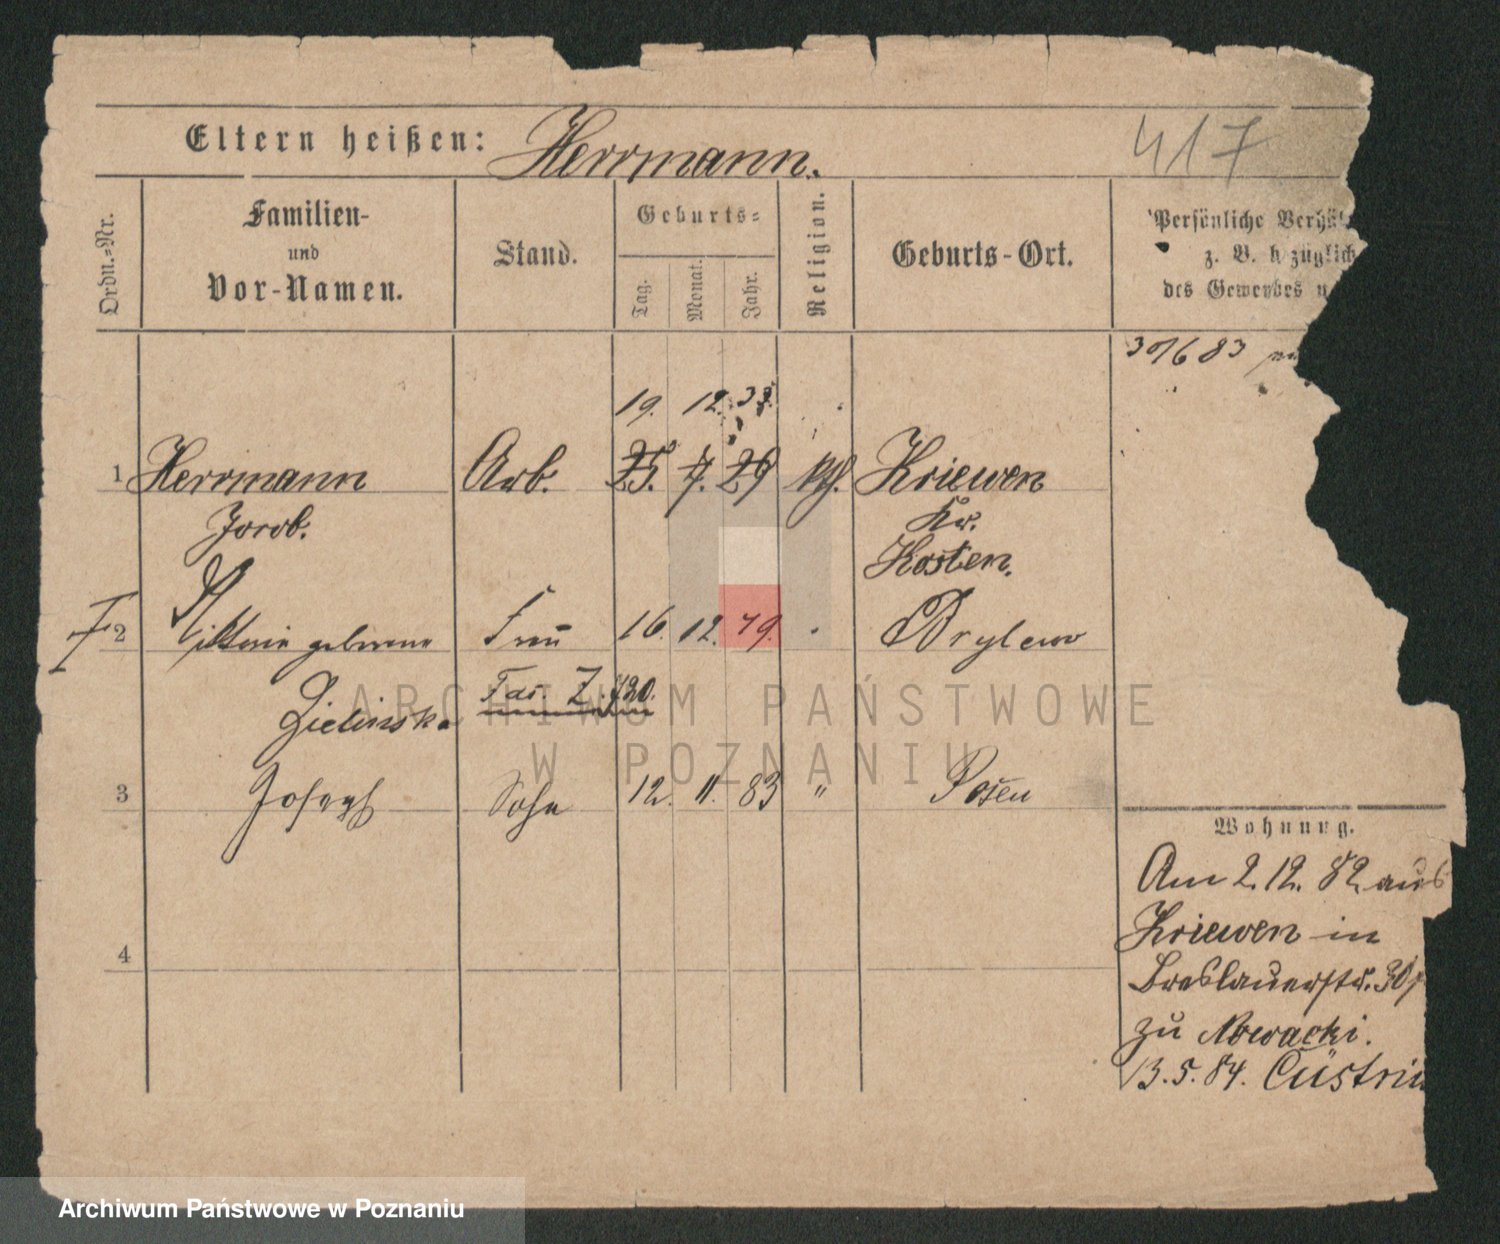 Eltern heißen: Herrmann.
417
Ordn.=Nr.
Familien-
und
Vor-Namen.
Stand.
Geburts=
Tag.
Monat.
Jahr.
Religion.
Geburts-Ort.
Persönliche
z. B. bezüglich
des Gewerbes
30/6 83
19. 12.
1 Herrmann Arb. 25. 7. 29 kth. Kriewen
Jacob. Kr.
Kosten.
2 Viktoria geborene Frau 16. 12. 49. Brylewo
Zielinska
3 Joseph Sohn 12. 11. 83 " Posen
4
Wohnung.
Am 2. 12. 82 aus
Kriewen in
Breslauerstr. 30
zu Nowacki.
13. 5. 84. Cüstrin
ARCHIWUM PAŃSTWOWE
W POZNANIU
Archiwum Państwowe w Poznaniu